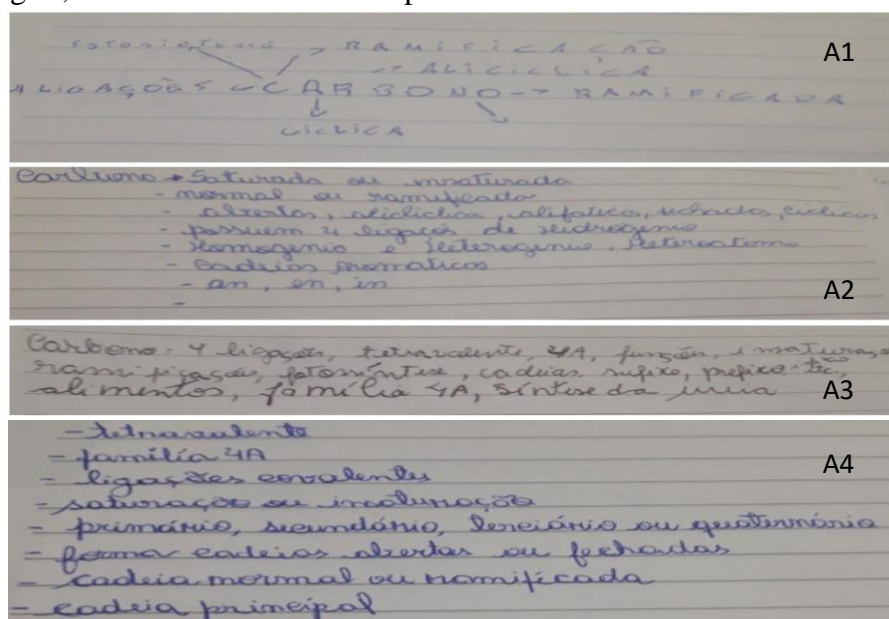 fotossíntese → RAMIFICAÇÃO
→ ALICICLICA
4 LIGAÇÕES ← CARBONO → RAMIFICADA
CICLICA
A1
Carbono → Saturada ou insaturada
- normal ou ramificada
- abertas, aliciclicas, alifatico, fechados, ciclicos
- possuem 4 ligacos de Hidrogenio
- Homogenio e Heterogenio. Heteroatomo
- Cadeias aromaticos
- an, en, in
-
A2
Carbono: 4 ligações, tetravalente, 4A, funções,
ramificações, fotossíntese, cadeias sufixo, prefixo etc,
alimentos, família 4A, síntese da uréia
A3
- tetravalente
- família 4A
- ligações covalentes
- saturação ou insaturação
- primário, secundário, terciário ou quaternário
- forma cadeias abertas ou fechadas
- cadeia normal ou ramificada
- cadeia principal
A4